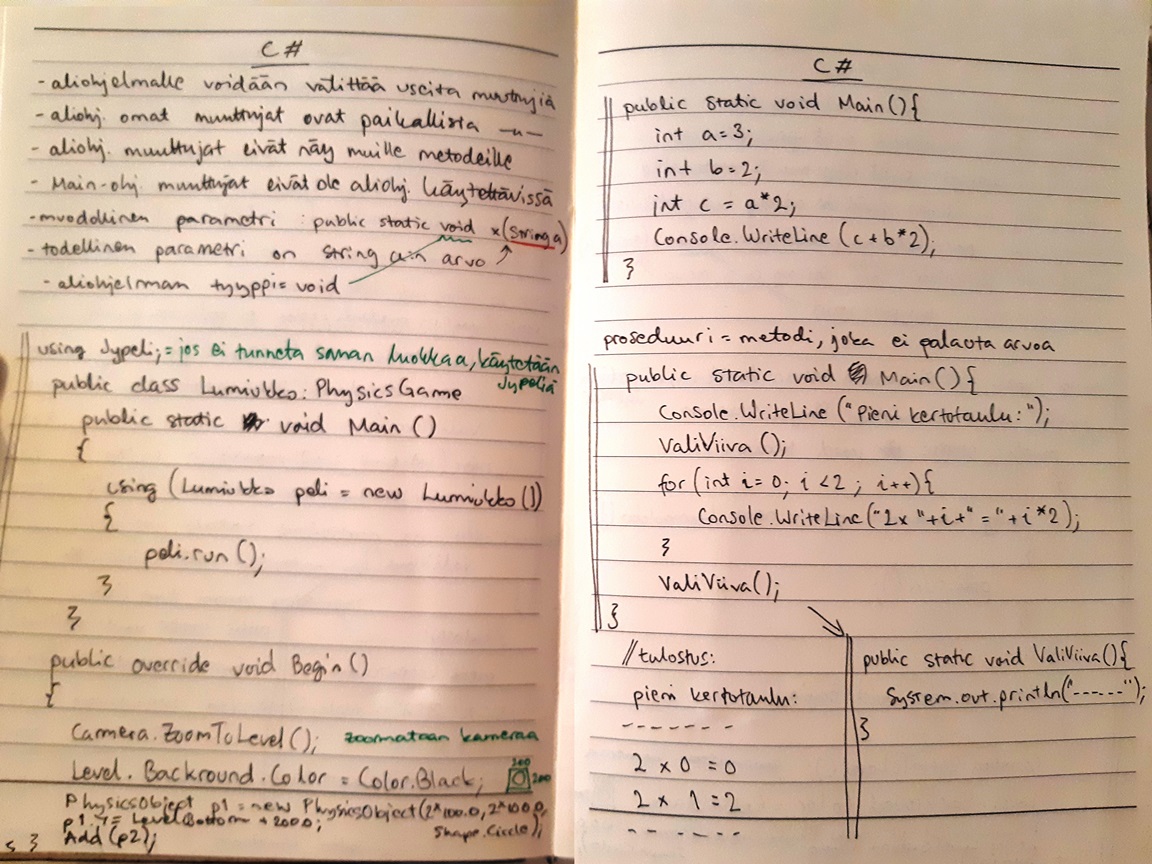 C#
- aliohjelmalle voidään välittää useita muuttujia
- aliohj. omat muuttujat ovat paikallista —u—
- aliohj. muuttujat eivät näy muille metodeille
- Main-ohj. muuttujat eivät ole aliohj. käytettävissä
- muodollinen parametri : public static void x(String a)
- todellinen parametri on string a:n arvo
- aliohjelman tyyppi = void
using Jypeli; = jos ei tunneta saman luokkaa, käytetään
Jypeliä
public class Lumiukko : PhysicsGame
public static void Main ()
{
using (Lumiukko peli = new Lumiukko ())
{
peli.run ();
}
}
public override void Begin ()
{
Camera.ZoomToLevel (); zoomataan kameraa
Level. Backround.Color = Color.Black;
200
200
PhysicsObject p1 = new PhysicsObject (2*100.0, 2*100.0,
Shape.Circle);
p1.Y = Level.Bottom + 200.0;
Add (p2);
}
C#
public static void Main () {
int a = 3;
int b = 2;
int c = a*2;
Console.WriteLine (c + b*2);
}
proseduuri = metodi, joka ei palauta arvoa
public static void Main () {
Console.WriteLine ("Pieni kertotaulu:");
ValiViiva ();
for (int i = 0; i < 2 ; i++) {
Console.WriteLine ("2x "+i+" = "+i*2);
}
ValiViiva();
}
//tulostus:
pieni kertotaulu:
-------
2 x 0 = 0
2 x 1 = 2
-- ----
public static void ValiViiva () {
System.out.println("------");
}